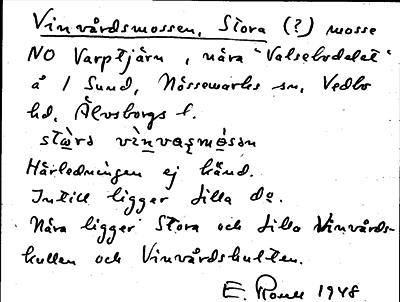 Vinvårdsmossen, Stora (?) mosse
NO Varptjärn, nära "Valsebodalet"
å 1 Sund, Nössemarks sn, Vedbo
hd, Älvsborgs l.
Härledningen ej känd.
Intill ligger Lilla do.
Nära ligger Stora och Lilla Vinvårds-
kullen och Vinvårdshulten.
E. 1948